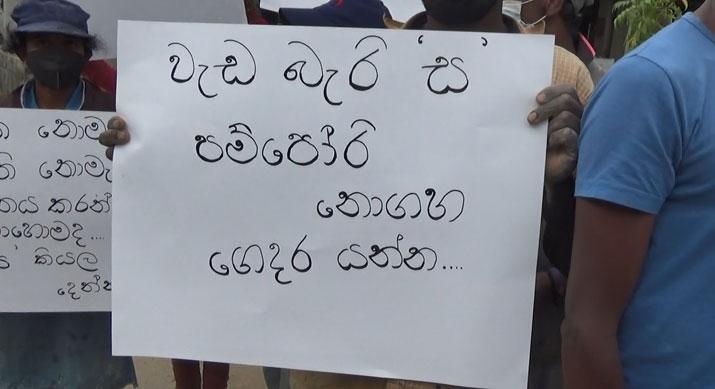 වැඩ බැරි 'ස'
පම්පෝරි
නොගහ
ගෙදර යන්න....
නොම
ති නොමැ
තය කරන්
හොමද....
කියල
දෙන්න